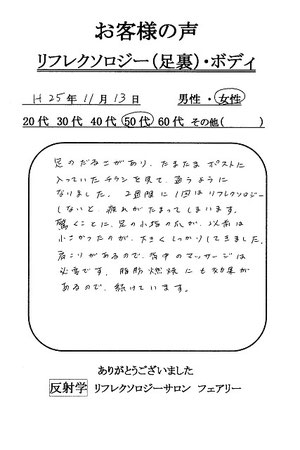 お客様の声
リフレクソロジー(足裏)・ボディ
H25年11月13日 男性・女性
20代 30代 40代 50代 60代 その他( )
足のだるさがあり、たまたまポストに
入っていたチラシを見て、通うように
なりました。2週間に1回はリフレクソロジー
しないと、疲れがたまってしまいます。
驚くことに、足の小指の爪が、以前は
小さかったのが、大きくしっかりしてきました。
肩こりがあるので、背中のマッサージは
必需です。脂肪燃焼にも効果が
あるので、続けています。
ありがとうございました
反射学 リフレクソロジーサロン フェアリー